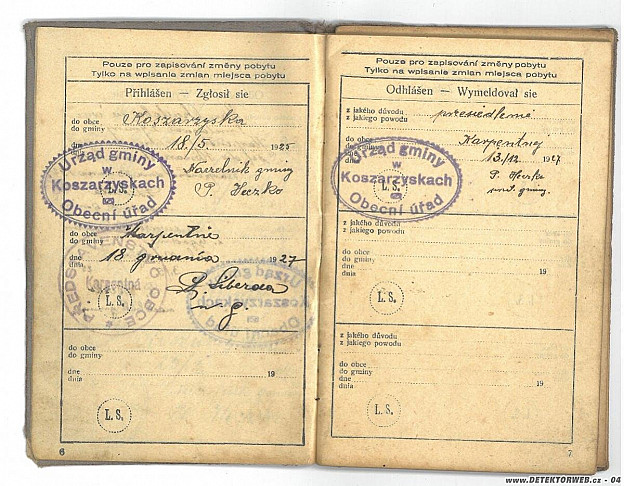 Pouze pro zapisování změny pobytu
Tylko na wpisanie zmian miejsca pobytu
Přihlášen — Zgłosił sie
do obce
do gminy
Koszarzyska
dne
dnia
18/5. 1925
Urząd gminy
w
Koszarzyskach
L. S.
Obecní úřad
Naczelnik gminy
P. Heczko
do obce
do gminy
Karpentné
dne
dnia
18 grudnia 1927
Karpentná
L. S.
do obce
do gminy
dne
dnia
19
L. S.
6
Pouze pro zapisování změny pobytu
Tylko na wpisanie zmian miejsca pobytu
Odhlášen — Wymeldował sie
z jakého důvodu
z jakiego powodu
do obce
do gminy
Karpentnej
dne
dnia
13/12 1927
Urząd gminy
w
Koszarzyskach
L. S.
Obecní úřad
P. Heczko
z jakého důvodu
z jakiego powodu
do obce
do gminy
dne
dnia
19
L. S.
z jakého důvodu
z jakiego powodu
do obce
do gminy
dne
dnia
19
L. S.
7
www.DETEKTORWEB.cz - 04